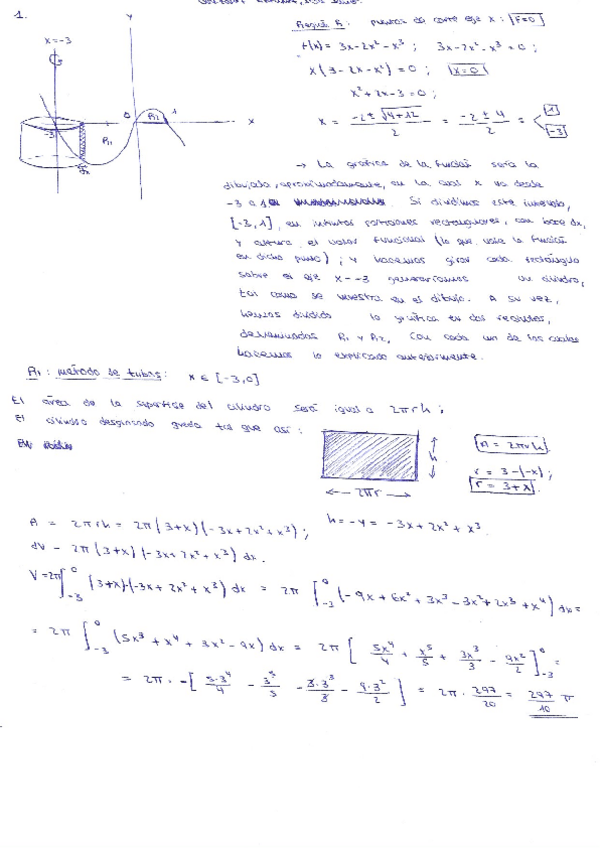 1.
Región R: puntos de corte eje x: F=0
f(x) = 3x-2x²-x³ ; 3x-2x²-x³=0 ;
x(3-2x-x²)=0 ; x=0
x²+2x-3=0 ;
x = (-2±√(4+12))/2 = (-2±4)/2 = 1, -3
x=-3
Y
0
R₂
1
x
-3
R₁
dx
→ La gráfica de la función será la
dibujada, aproximadamente, en la cual x va desde
-3 a 1. Si dividimos este intervalo,
[-3,1], en infinitas porciones rectangulares, con base dx,
y altura el valor funcional (lo que vale la función
en dicho punto); y hacemos girar cada rectángulo
sobre el eje x=-3 generaríamos un cilindro,
tal como se muestra en el dibujo. A su vez,
hemos dividido la gráfica en dos regiones,
denominadas R₁ y R₂, con cada un de las cuales
hacemos lo explicado anteriormente.
R₁: método de tubos: x ∈ [-3,0]
El área de la superficie del cilindro será igual a 2πrh ;
El cilindro queda tal que así:
h
A = 2πrh
<-- 2πr -->
r = 3-(-x) ;
r = 3+x
A = 2πrh = 2π(3+x)(-3x+2x²+x³) ; h=-y = -3x+2x²+x³
dV = 2π(3+x)(-3x+2x²+x³)dx.
V=2π∫₋₃⁰ (3+x)(-3x+2x²+x³)dx = 2π ∫₋₃⁰ (-9x+6x²+3x³-3x²+2x³+x⁴)dx =
= 2π ∫₋₃⁰ (5x³+x⁴+3x²-9x)dx = 2π [5x⁴/4 + x⁵/5 + 3x³/3 - 9x²/2]₋₃⁰ =
= 2π · -[5·3⁴/4 - 3⁵/5 - 3·3³/3 - 9·3²/2] = 2π · 297/20 = 297/10 π